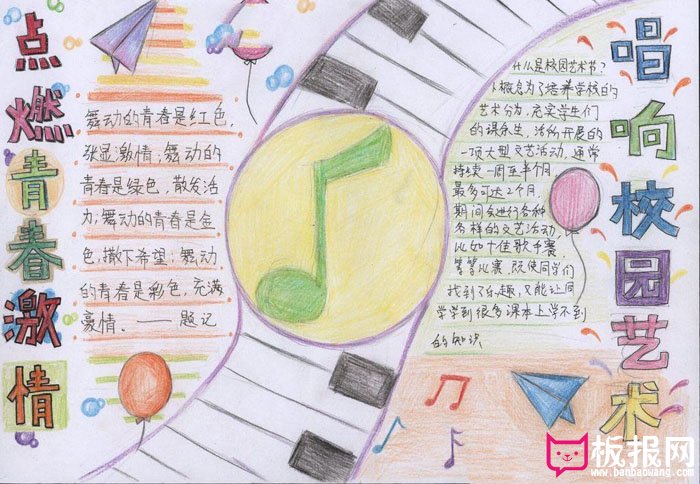 点燃青春激情
舞动的青春是红色，
张显激情；舞动的
青春是绿色，散发活
力；舞动的青春是金
色，撒下希望；舞动
的青春是彩色，充满
豪情。——题记
什么是校园艺术节？
概念为了培养学校的
艺术分为，充实学生们
的课余生，活所开展的
一项大型文艺活动，通常
持续一周至半个月
最多可达2个月，
期间会进行各种
多样的文艺活动，
比如十佳歌手赛，
等等比赛，既使同学们
找到了乐趣，又能让同
学学到很多课本上学不到
的知识
唱响校园艺术
板报网
www.banbaowang.com